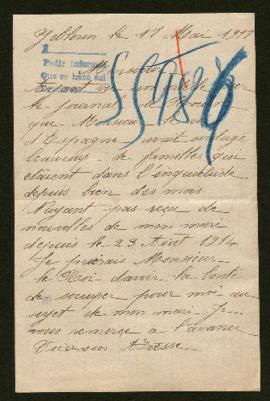 Gebleren le 17 Mai 1917
Pedir informe
Que se hace así
Monsieur
Ayant vu un
le journal
que Monsieur
d'Espagne avait soulagé
beaucoup de familles qui
étaient dans l'inquiétude
depuis bien des mois
N'ayant pas reçu de
nouvelles de mon mari
depuis le 23 Août 1914
Je prierais Monsieur
le Roi d'avoir la bonté
de s'occuper pour moi au
sujet de mon mari. Je
vous remercie a l'avance
Voici son Adresse